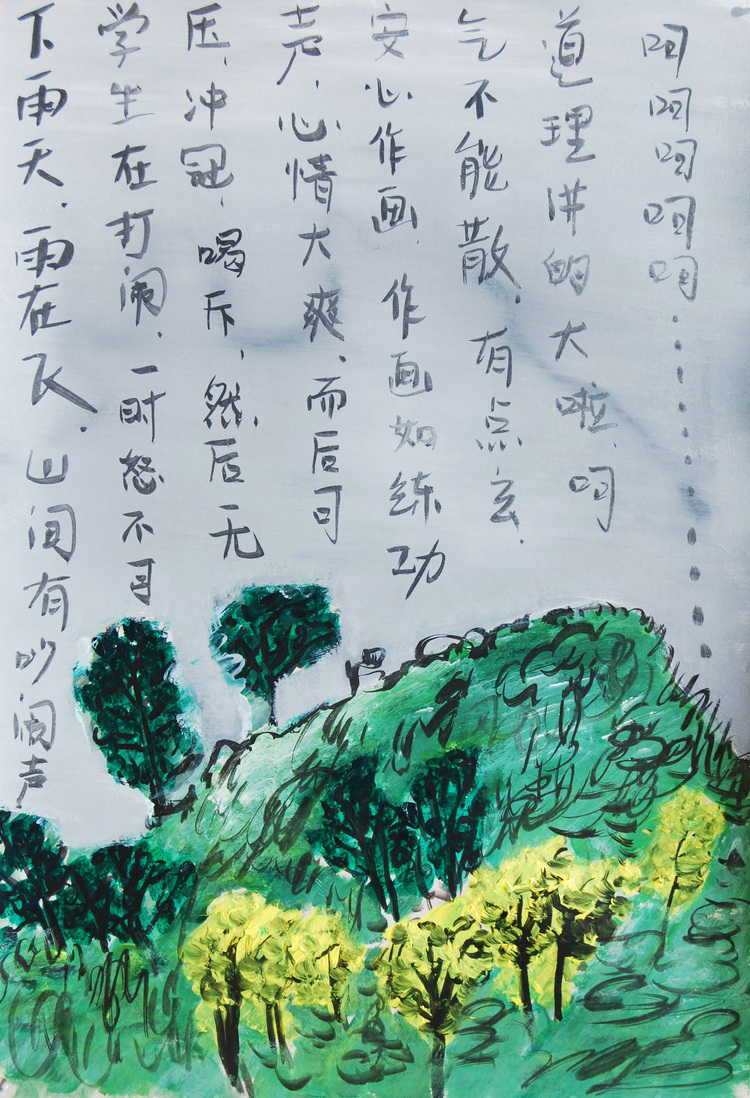 下雨天.雨在飞.山间有吵闹声
学生在打闹,一时怒不可
压.冲冠.喝斥,然后无
声,心情大爽.而后可
安心作画.作画如练功
气不能散.有点玄.
道理讲的大啦.呵
呵呵呵呵呵………………